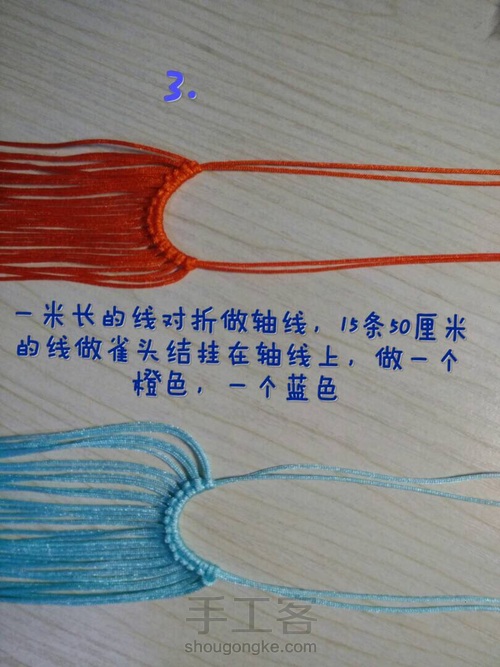 3.
一米长的线对折做轴线，15条50厘米
的线做雀头结挂在轴线上，做一个
橙色，一个蓝色
手工客
shougongke.com